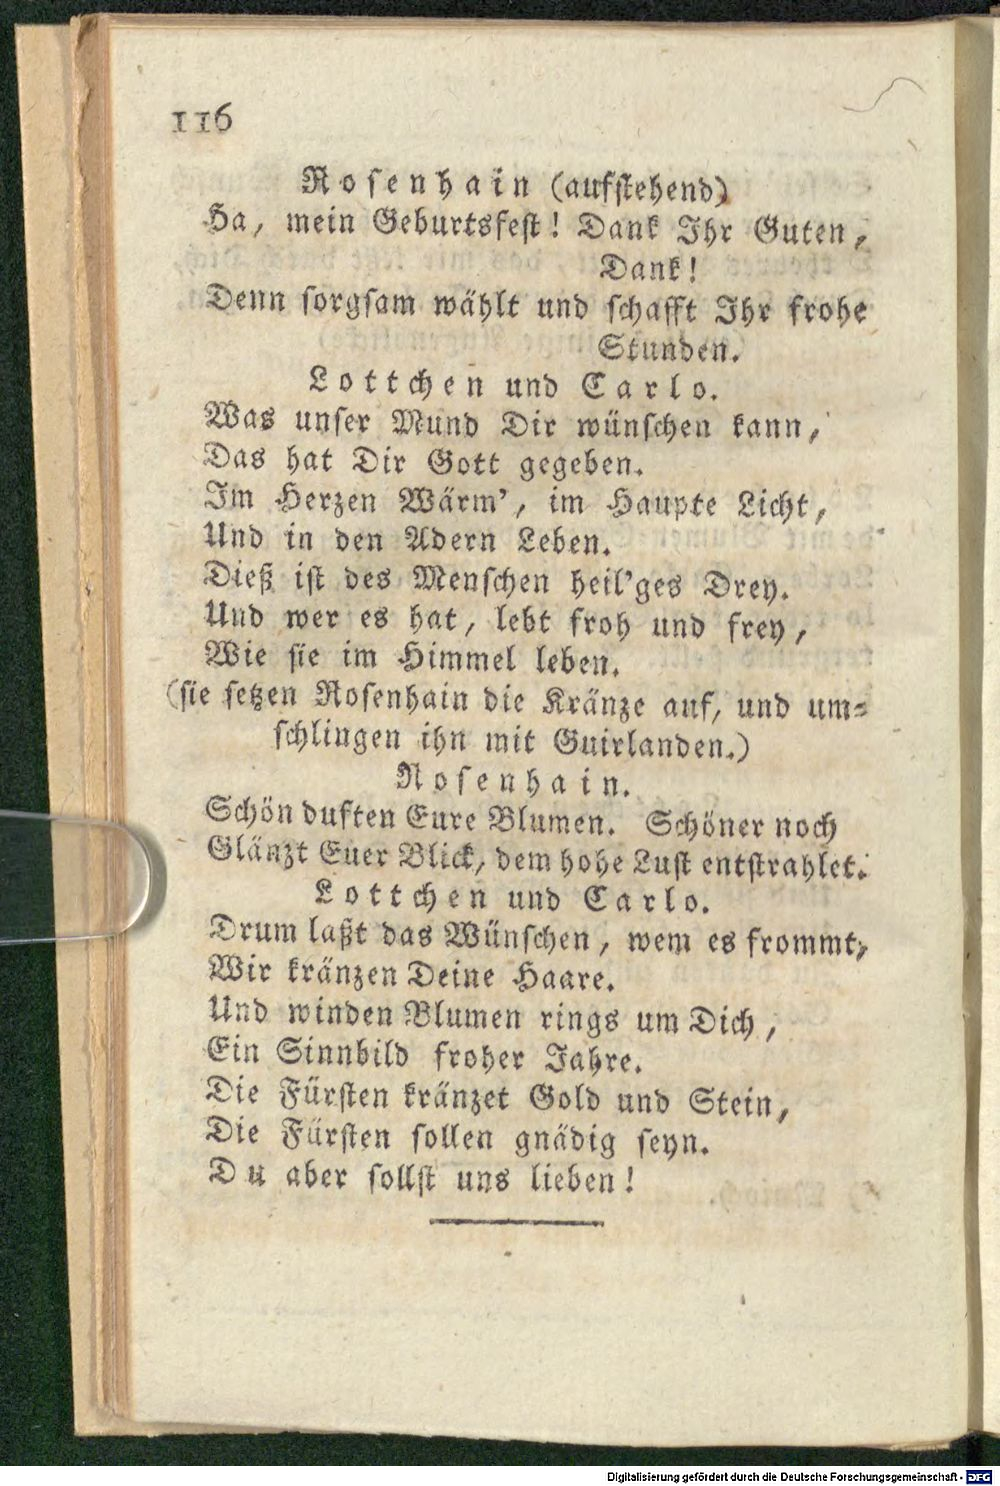 116
Rosenhain (aufstehend)
Ha, mein Geburtsfest! Dank Ihr Guten,
Dank!
Denn sorgsam wählt und schafft Ihr frohe
Stunden.
Lottchen und Carlo.
Was unser Mund Dir wünschen kann,
Das hat Dir Gott gegeben.
Im Herzen Wärm', im Haupte Licht,
Und in den Adern Leben.
Dieß ist des Menschen heil'ges Drey.
Und wer es hat, lebt froh und frey,
Wie sie im Himmel leben.
(sie setzen Rosenhain die Kränze auf, und um-
schlingen ihn mit Guirlanden.)
Rosenhain.
Schön duften Eure Blumen. Schöner noch
Glänzt Euer Blick, dem hohe Lust entstrahlet.
Lottchen und Carlo.
Drum laßt das Wünschen, wem es frommt,
Wir kränzen Deine Haare.
Und winden Blumen rings um Dich,
Ein Sinnbild froher Jahre.
Die Fürsten kränzet Gold und Stein,
Die Fürsten sollen gnädig seyn.
Du aber sollst uns lieben!
Digitalisierung gefördert durch die Deutsche Forschungsgemeinschaft - DFG